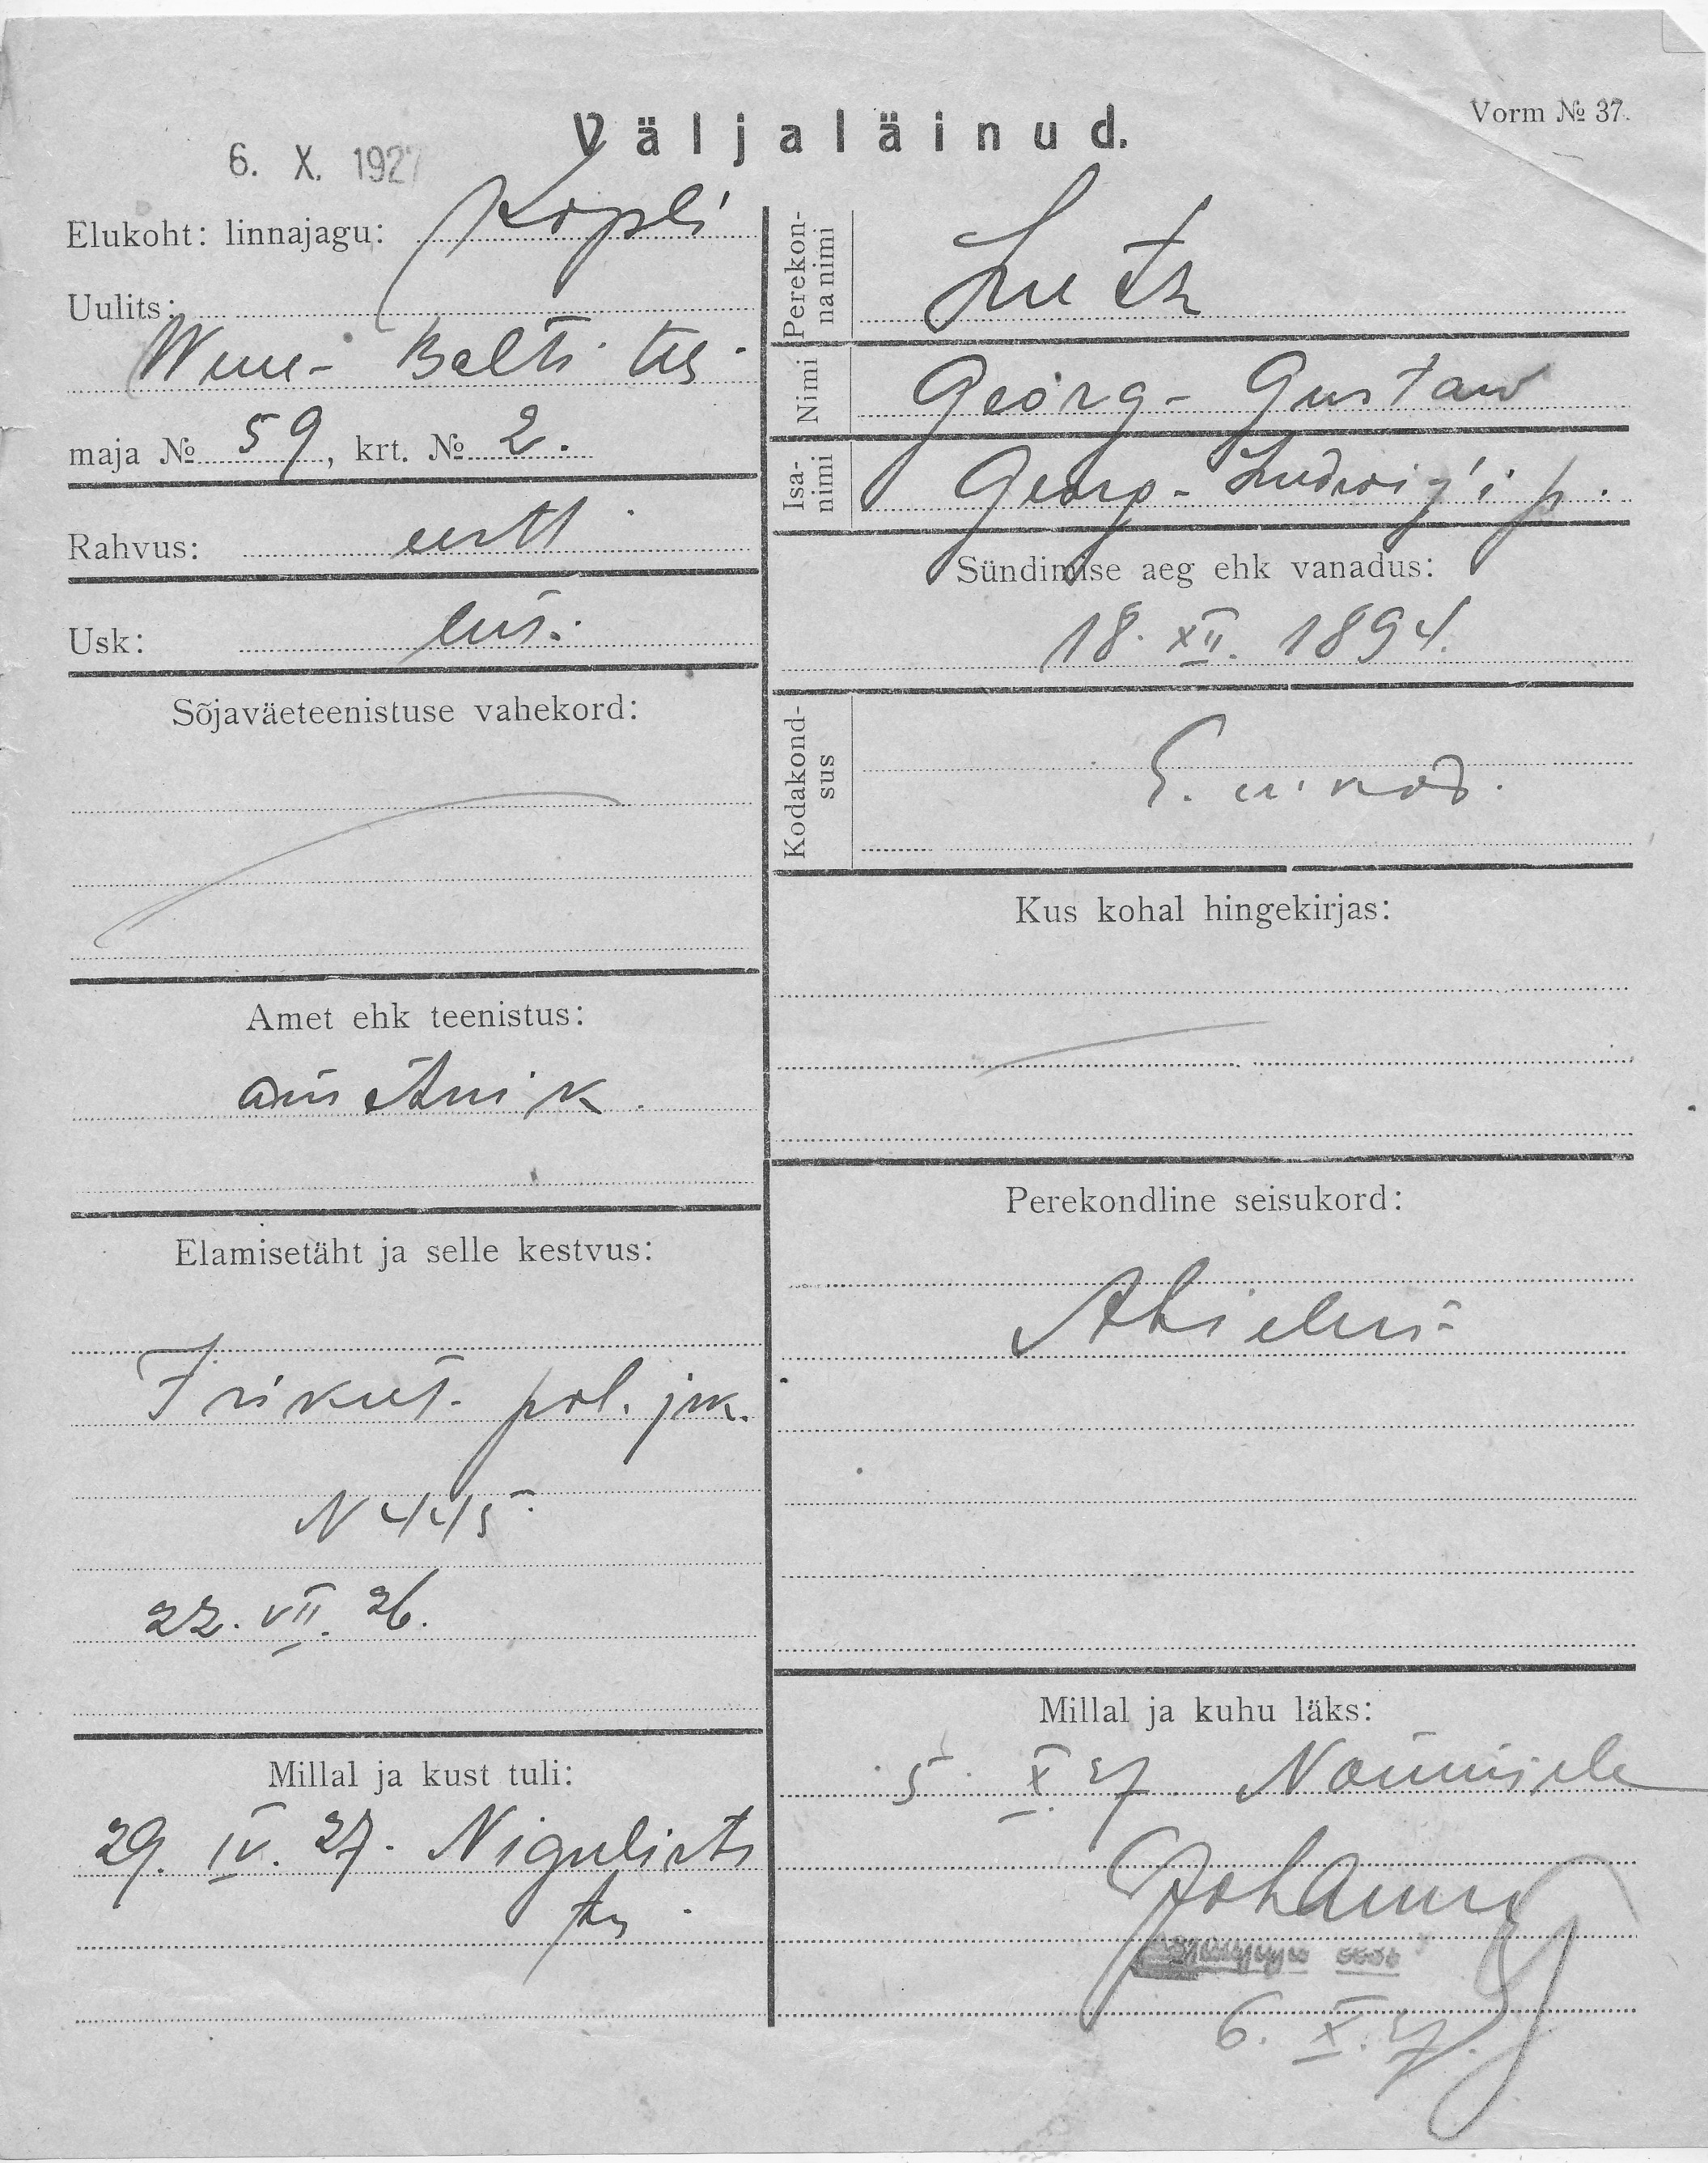 Väljaläinud.
Vorm № 37.
6. X. 1927
Elukoht: linnajagu: Kopli
Uulits:
Wene-Balti teh.
maja № 59, krt. № 2.
Rahvus: eesti
Usk: lut.
Sõjaväeteenistuse vahekord:
Amet ehk teenistus:
ametnik.
Elamisetäht ja selle kestvus:
I rikut. pol. jsk.
N 445
22. VII. 26.
Millal ja kust tuli:
29. IV. 27. Nigulist
Perekon-
na nimi
Lutz
Nimi
Georg-Gustaw
Isa-
nimi
Georg-Ludwig'i p.
Sündimise aeg ehk vanadus:
18. XII. 1894.
Kodakond-
sus
E. w. kod.
Kus kohal hingekirjas:
Perekondline seisukord:
Abielus
Millal ja kuhu läks:
5. X. 27. Nõmmele
6. X. 27.